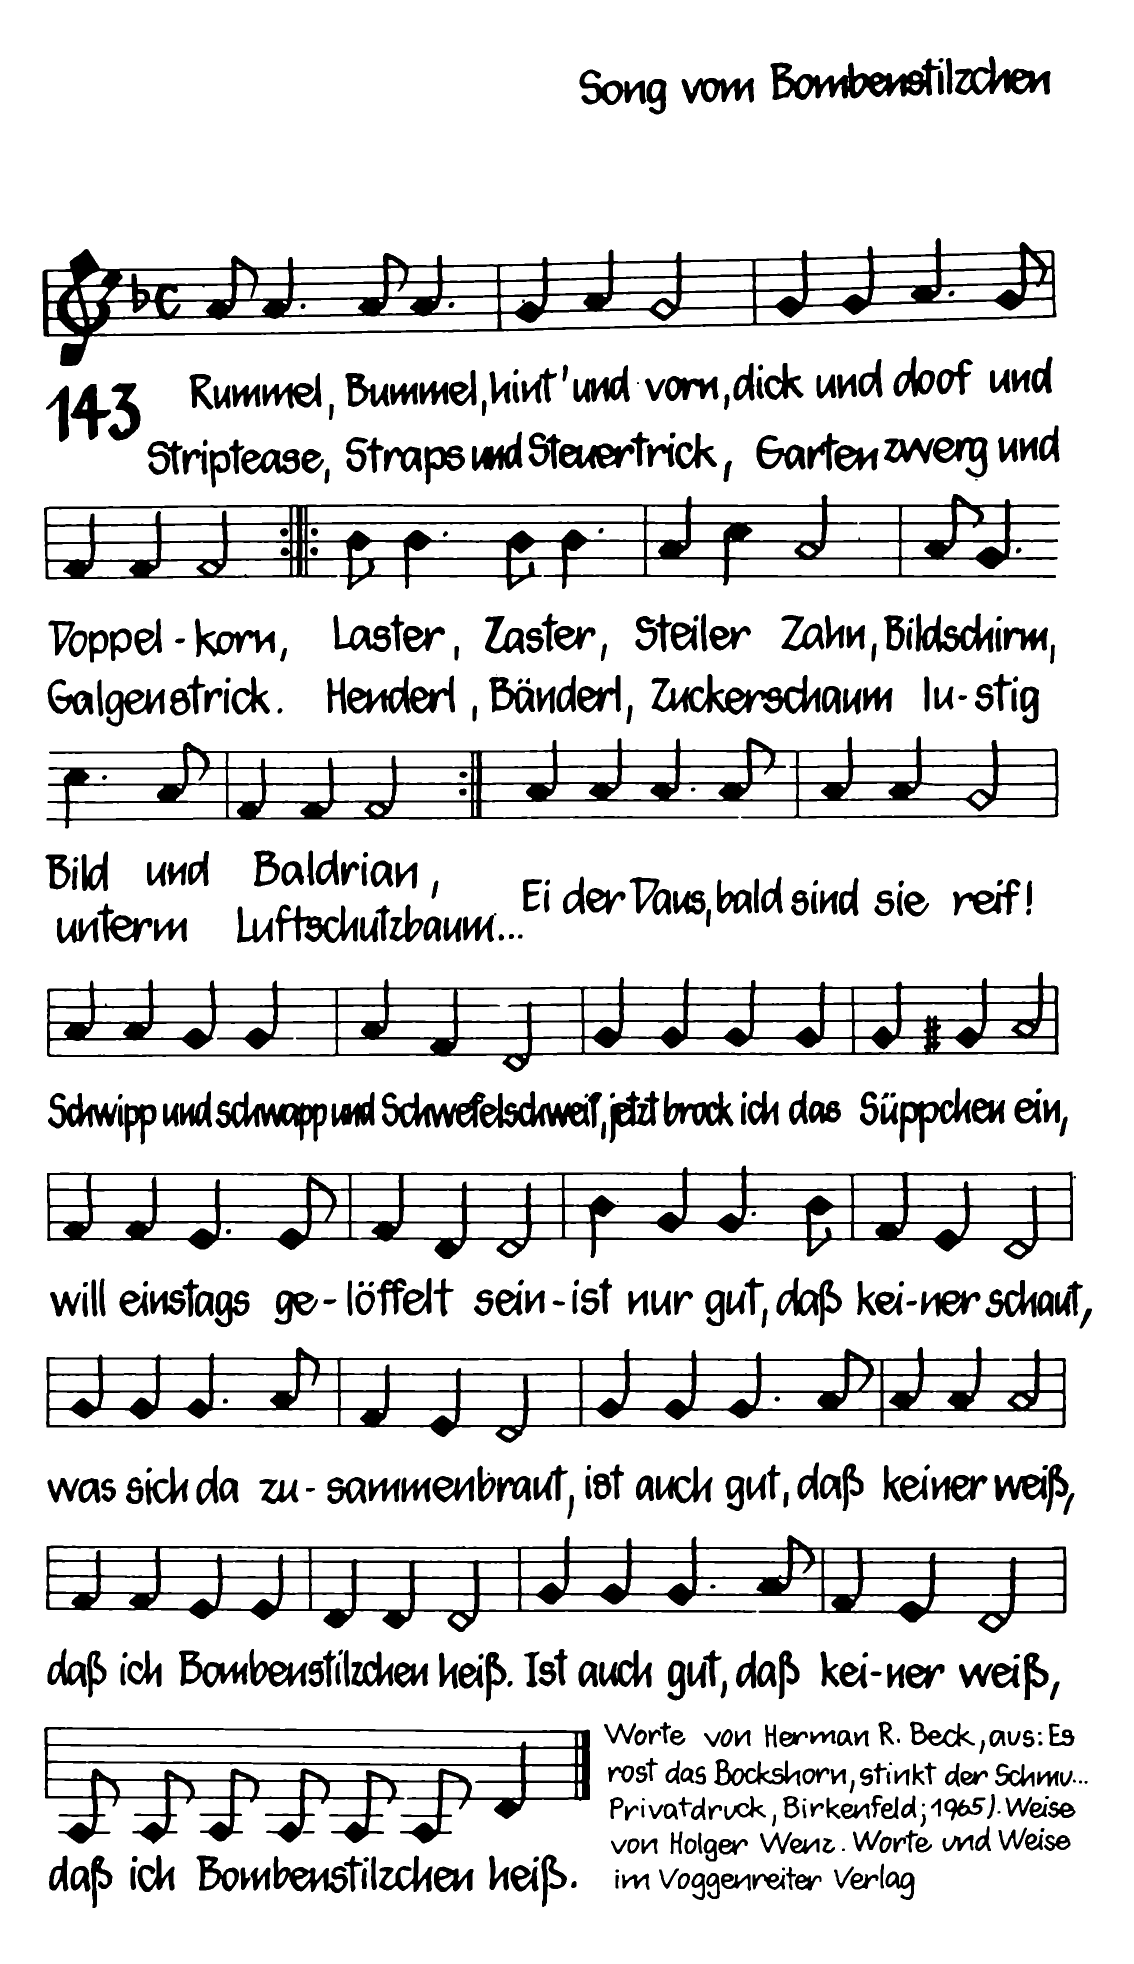 Song vom Bombenstilzchen
143 Rummel, Bummel, hint' und vorn, dick und doof und
Striptease, Straps und Steuertrick, Gartenzwerg und
Doppel-korn, Laster, Zaster, Steiler Zahn, Bildschirm,
Galgenstrick. Henderl, Bänderl, Zuckerschaum lu-stig
Bild und Baldrian,
unterm Luftschutzbaum...
Ei der Daus, bald sind sie reif!
Schwipp und schwapp und Schwefelschweif, jetzt brock ich das Süppchen ein,
will einstags ge-löffelt sein-ist nur gut, daß kei-ner schaut,
was sich da zu-sammenbraut, ist auch gut, daß keiner weiß,
daß ich Bombenstilzchen heiß. Ist auch gut, daß kei-ner weiß,
daß ich Bombenstilzchen heiß.
Worte von Herman R. Beck, aus: Es
rost das Bockshorn, stinkt der Schmu...
Privatdruck, Birkenfeld; 1965). Weise
von Holger Wenz. Worte und Weise
im Voggenreiter Verlag